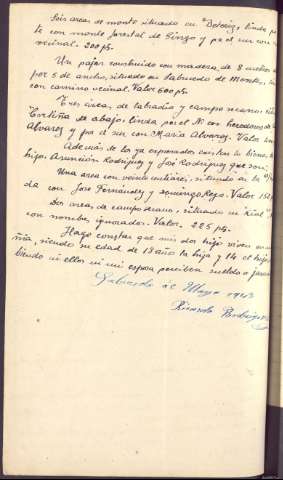 Seis areas de monte situado en "Deteiz", linda
te con monte forestal de Ginzo y por el sur con
vecinal. 200 pts.
Un pajar construido con madera, de 8 metros
por 5 de ancho, situado en Sabucedo de Montes,
con camino vecinal. Valor 600 pts.
Tres áreas, de labradío y campo secano,
Cortiña de abajo, linda por el N. con herederos de
Alvarez y por el sur con María Alvarez. Valor
Además de lo ya expresado existen los bienes
hijos Asunción Rodríguez y José Rodríguez que son:
Una area con veinte centiáreas, situado en la
da con José Fernández y Domingo Rego. Valor 150
Dos areas de campo secano, situado en Rial
con nombres ignorados. Valor, 225 pts.
Hago constar que mis dos hijos viven en
ñía, siendo su edad de 18 años la hija y 14 el hijo,
biendo ni ellos ni mi esposa perciben sueldo o
Sabucedo de Mayo 1943
Ricardo Rodríguez